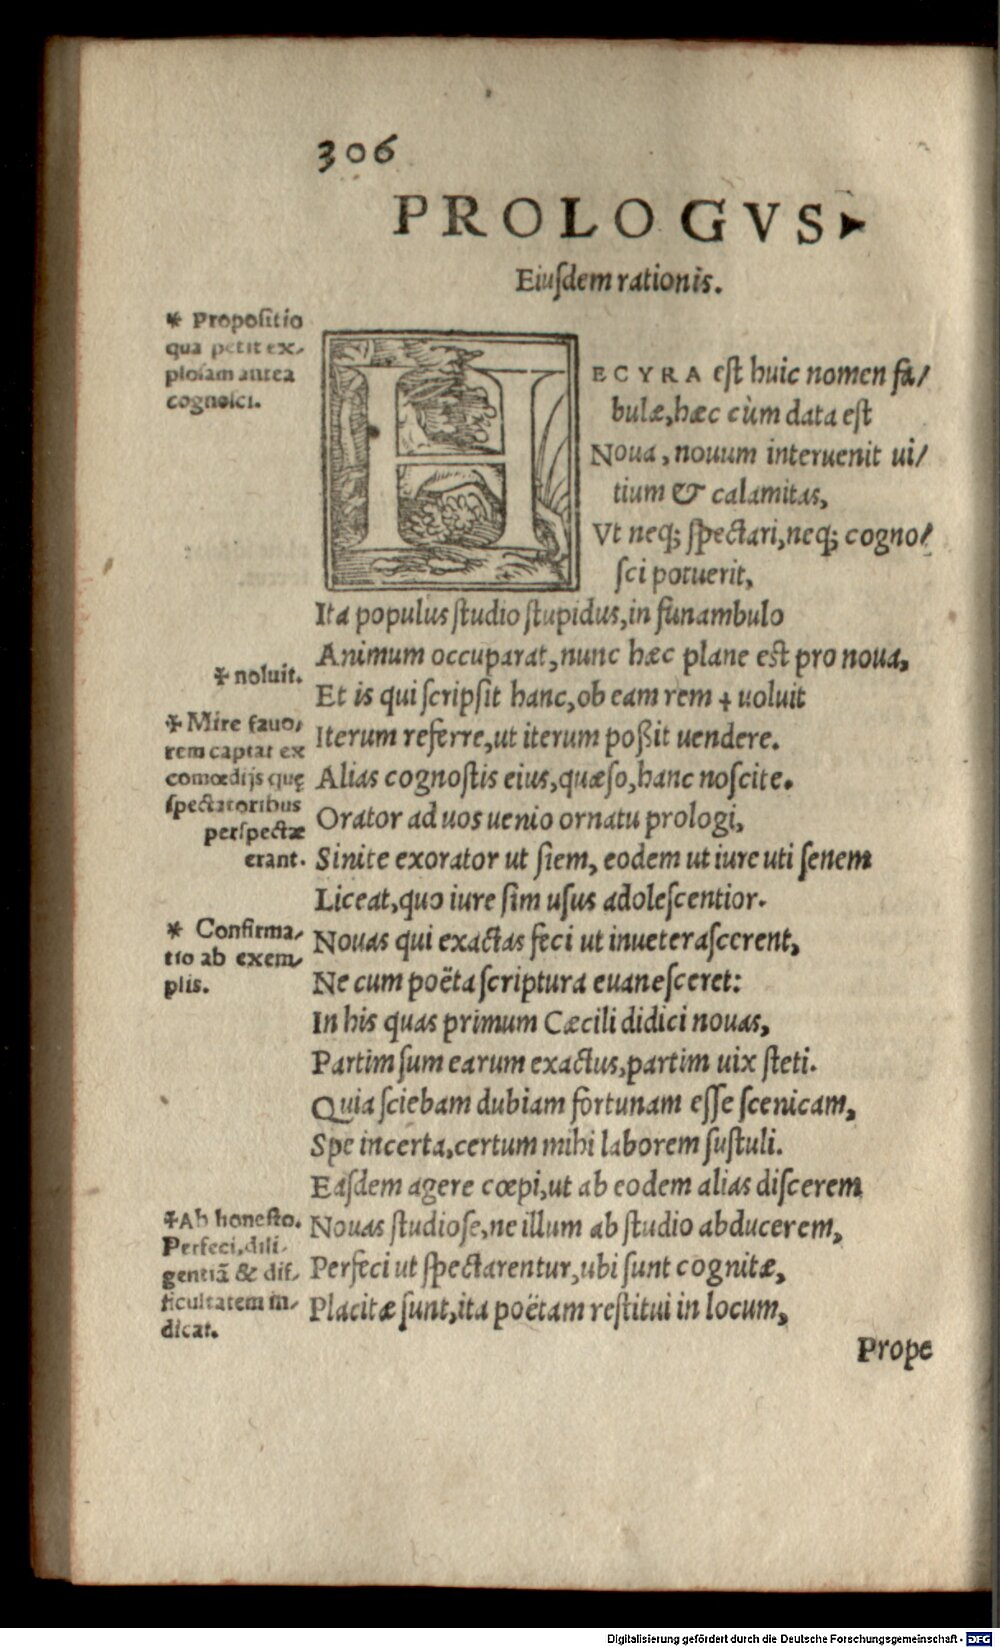 306
PROLOGVS
Eiuſdem rationis.
* Propoſitio
qua petit ex-
ploſam antea
cognoſci.
HECYRA eſt huic nomen fa/
bulæ, hæc cùm data eſt
Noua, nouum interuenit ui/
tium & calamitas,
Vt neq; ſpectari, neq; cogno/
ſci potuerit,
Ita populus ſtudio ſtupidus, in funambulo
Animum occuparat, nunc hæc plane eſt pro noua,
‡ noluit.
Et is qui ſcripſit hanc, ob eam rem ‡ uoluit
‡ Mire fauo-
rem captat ex
comœdijs quę
ſpectatoribus
perſpectæ
erant.
Iterum referre, ut iterum poßit uendere.
Alias cognoſtis eius, quæſo, hanc noſcite.
Orator ad uos uenio ornatu prologi,
Sinite exorator ut ſiem, eodem ut iure uti ſenem
Liceat, quo iure ſim uſus adoleſcentior.
* Confirma-
tio ab exem-
plis.
Nouas qui exactas feci ut inueteraſcerent,
Ne cum poëta ſcriptura euaneſceret:
In his quas primum Cæcili didici nouas,
Partim ſum earum exactus, partim uix ſteti.
Quia ſciebam dubiam fortunam eſſe ſcenicam,
Spe incerta, certum mihi laborem ſuſtuli.
Eaſdem agere cœpi, ut ab eodem alias diſcerem
‡ Ab honeſto.
Perfeci, dili-
gentiã & dif-
ficultatem in-
dicat.
Nouas ſtudioſe, ne illum ab ſtudio abducerem,
Perfeci ut ſpectarentur, ubi ſunt cognitæ,
Placitæ ſunt, ita poëtam reſtitui in locum,
Prope
Digitalisierung gefördert durch die Deutsche Forschungsgemeinschaft - DFG